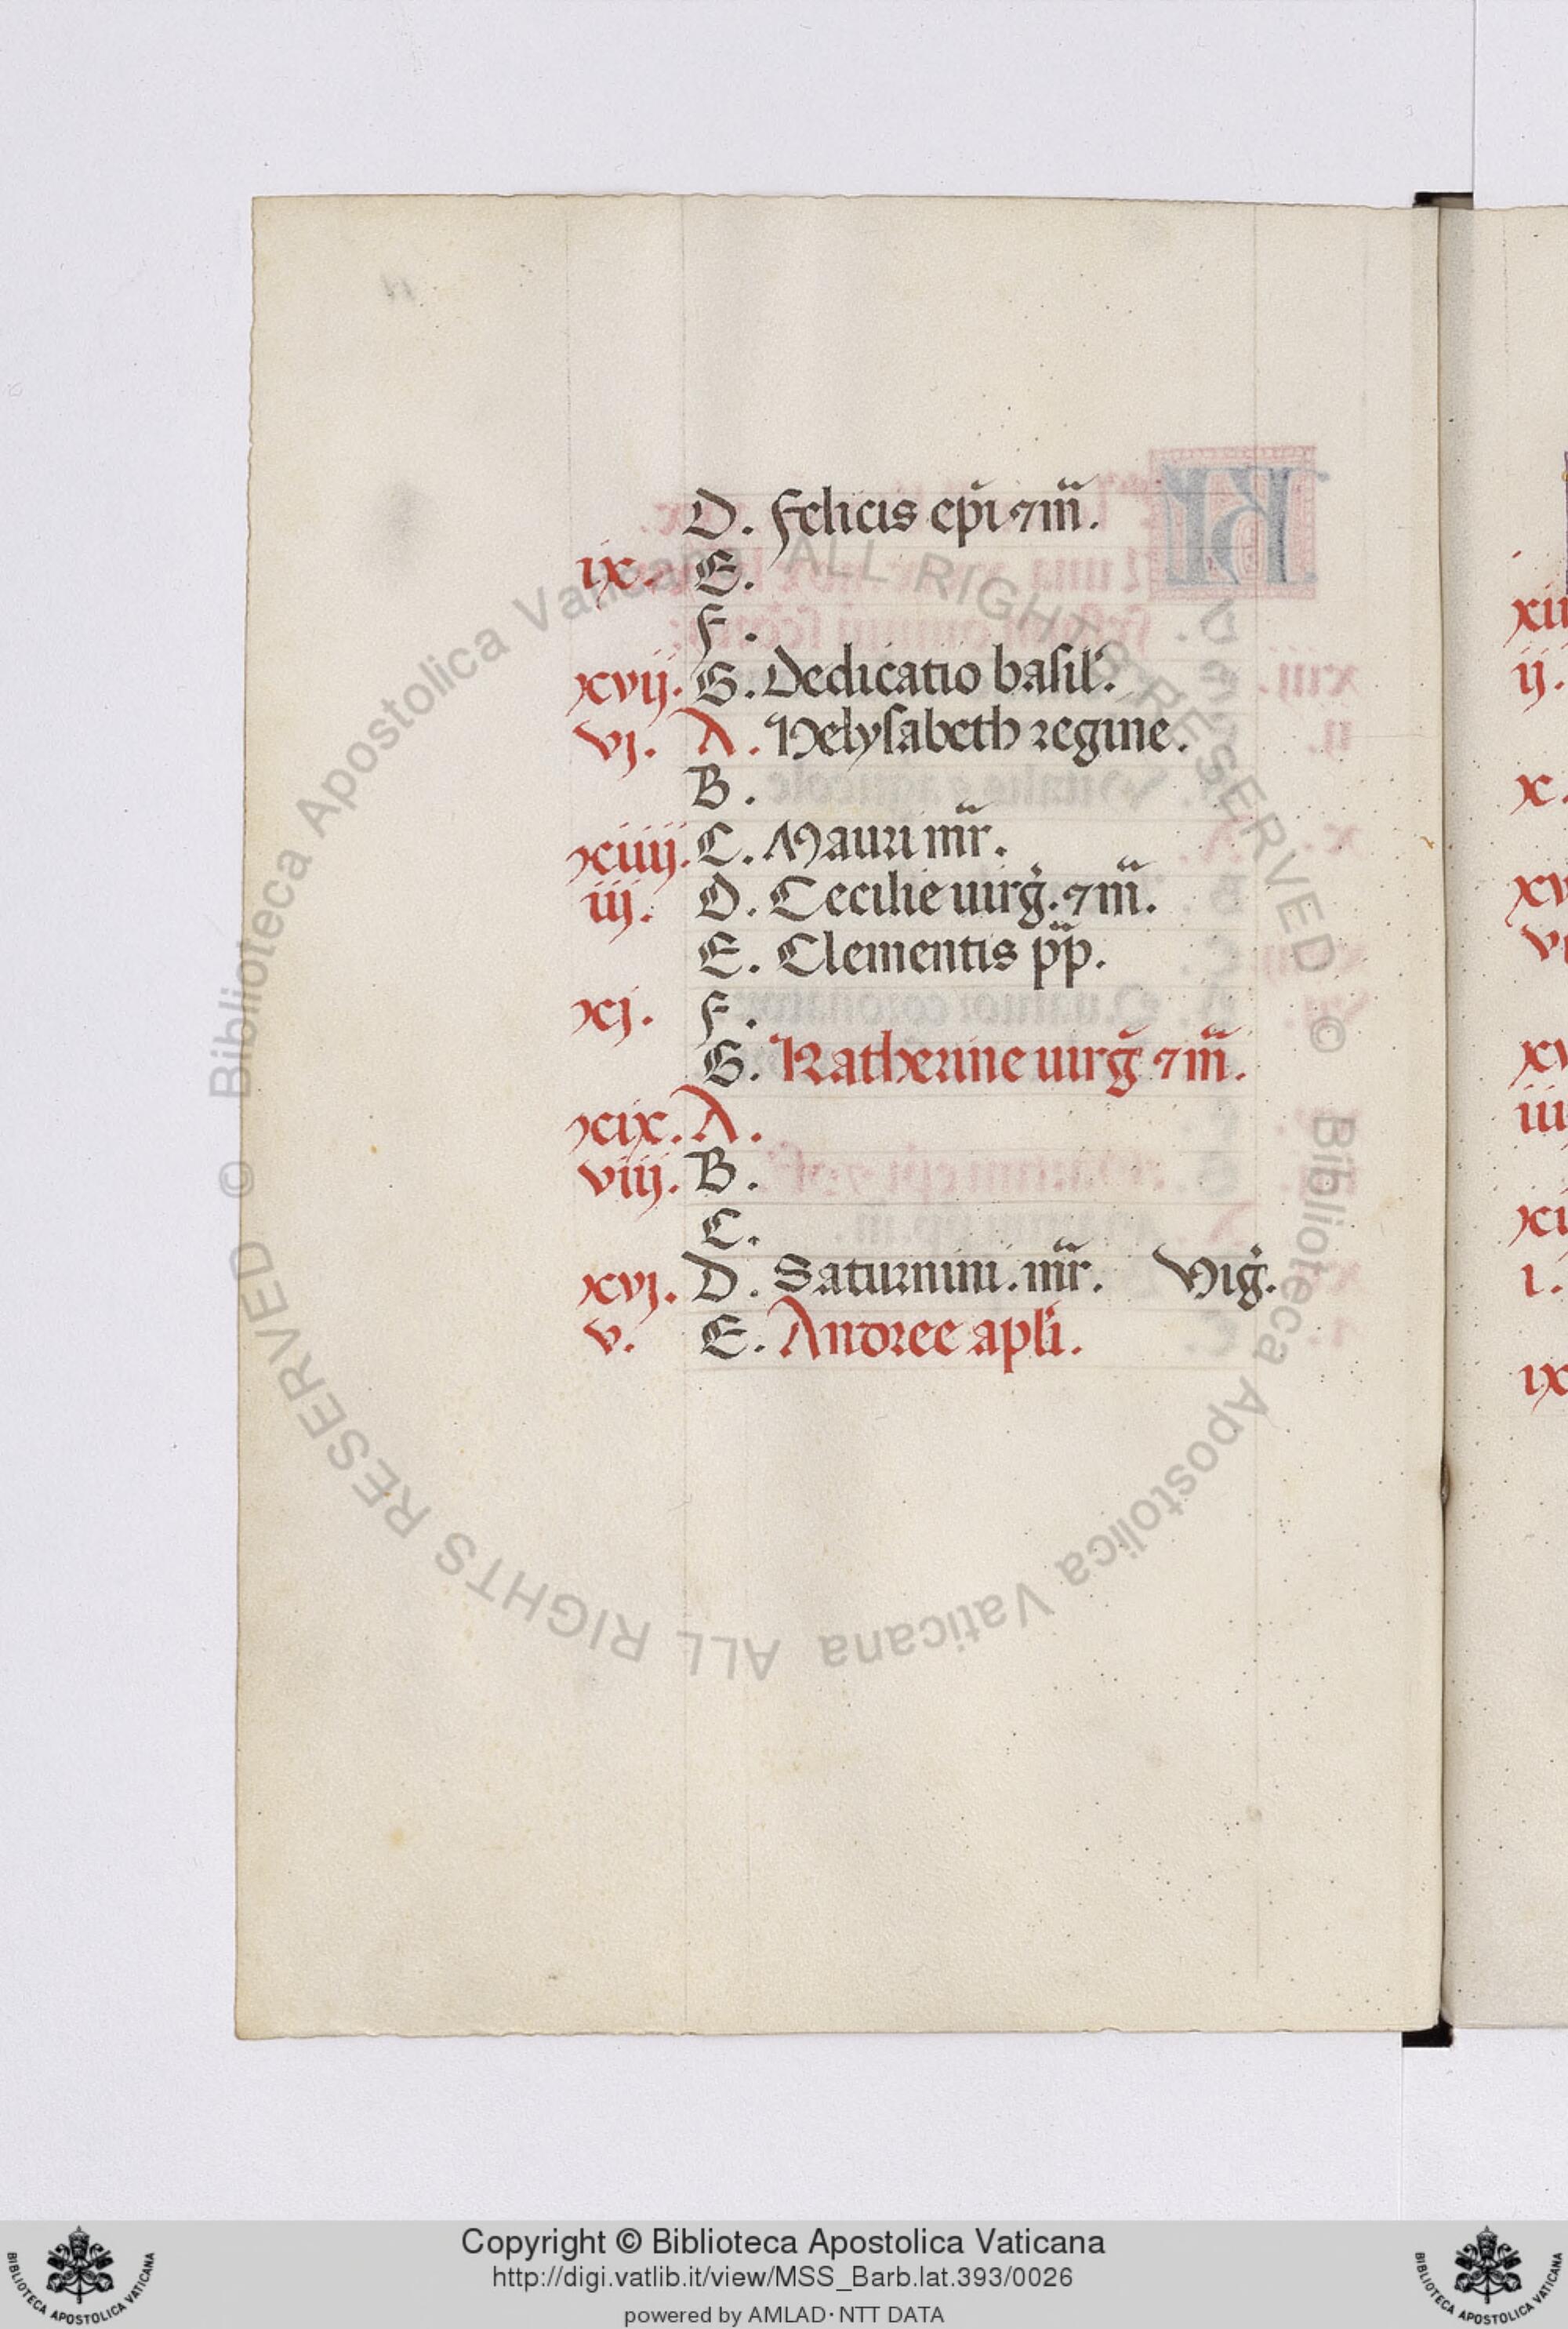 D. Felicis ep̄i ⁊ m̄.
ix. E.
F.
xvij. G. Dedicatio basil'.
vj. A. Helysabeth regine.
B.
xiiij. C. Mauri mr̄.
iij. D. Cecilie uirḡ. ⁊ m̄.
E. Clementis pp̄.
xj. F.
G. Katherine uirḡ ⁊ m̄.
xix. A.
viij. B.
C.
xvj. D. Saturnini. mr̄. Viḡ.
v. E. Andree apl'i.
xii
ij.
x.
xv
vi
xv
iii
xi
i.
ix
© Biblioteca Apostolica Vaticana ALL RIGHTS RESERVED © Biblioteca Apostolica Vaticana ALL RIGHTS RESERVED
Copyright © Biblioteca Apostolica Vaticana
http://digi.vatlib.it/view/MSS_Barb.lat.393/0026
powered by AMLAD·NTT DATA
BIBLIOTECA APOSTOLICA VATICANA
BIBLIOTECA APOSTOLICA VATICANA